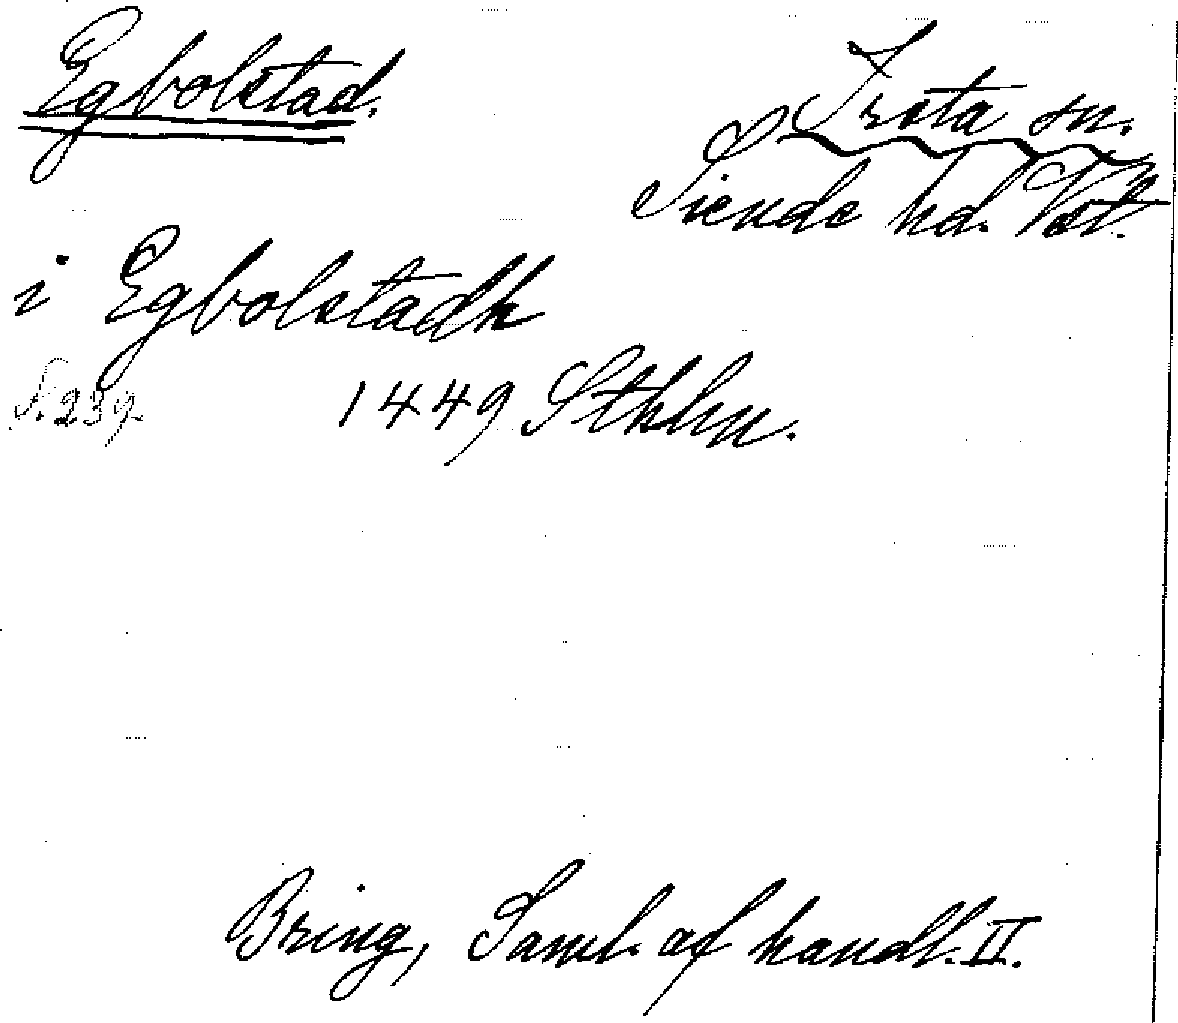 Egbolstad.
Irsta sn.
Siende hd. Vstl.
i Egbolstadh
s. 239.
1449 Sthlm.
Bring, Saml. af handl. II.